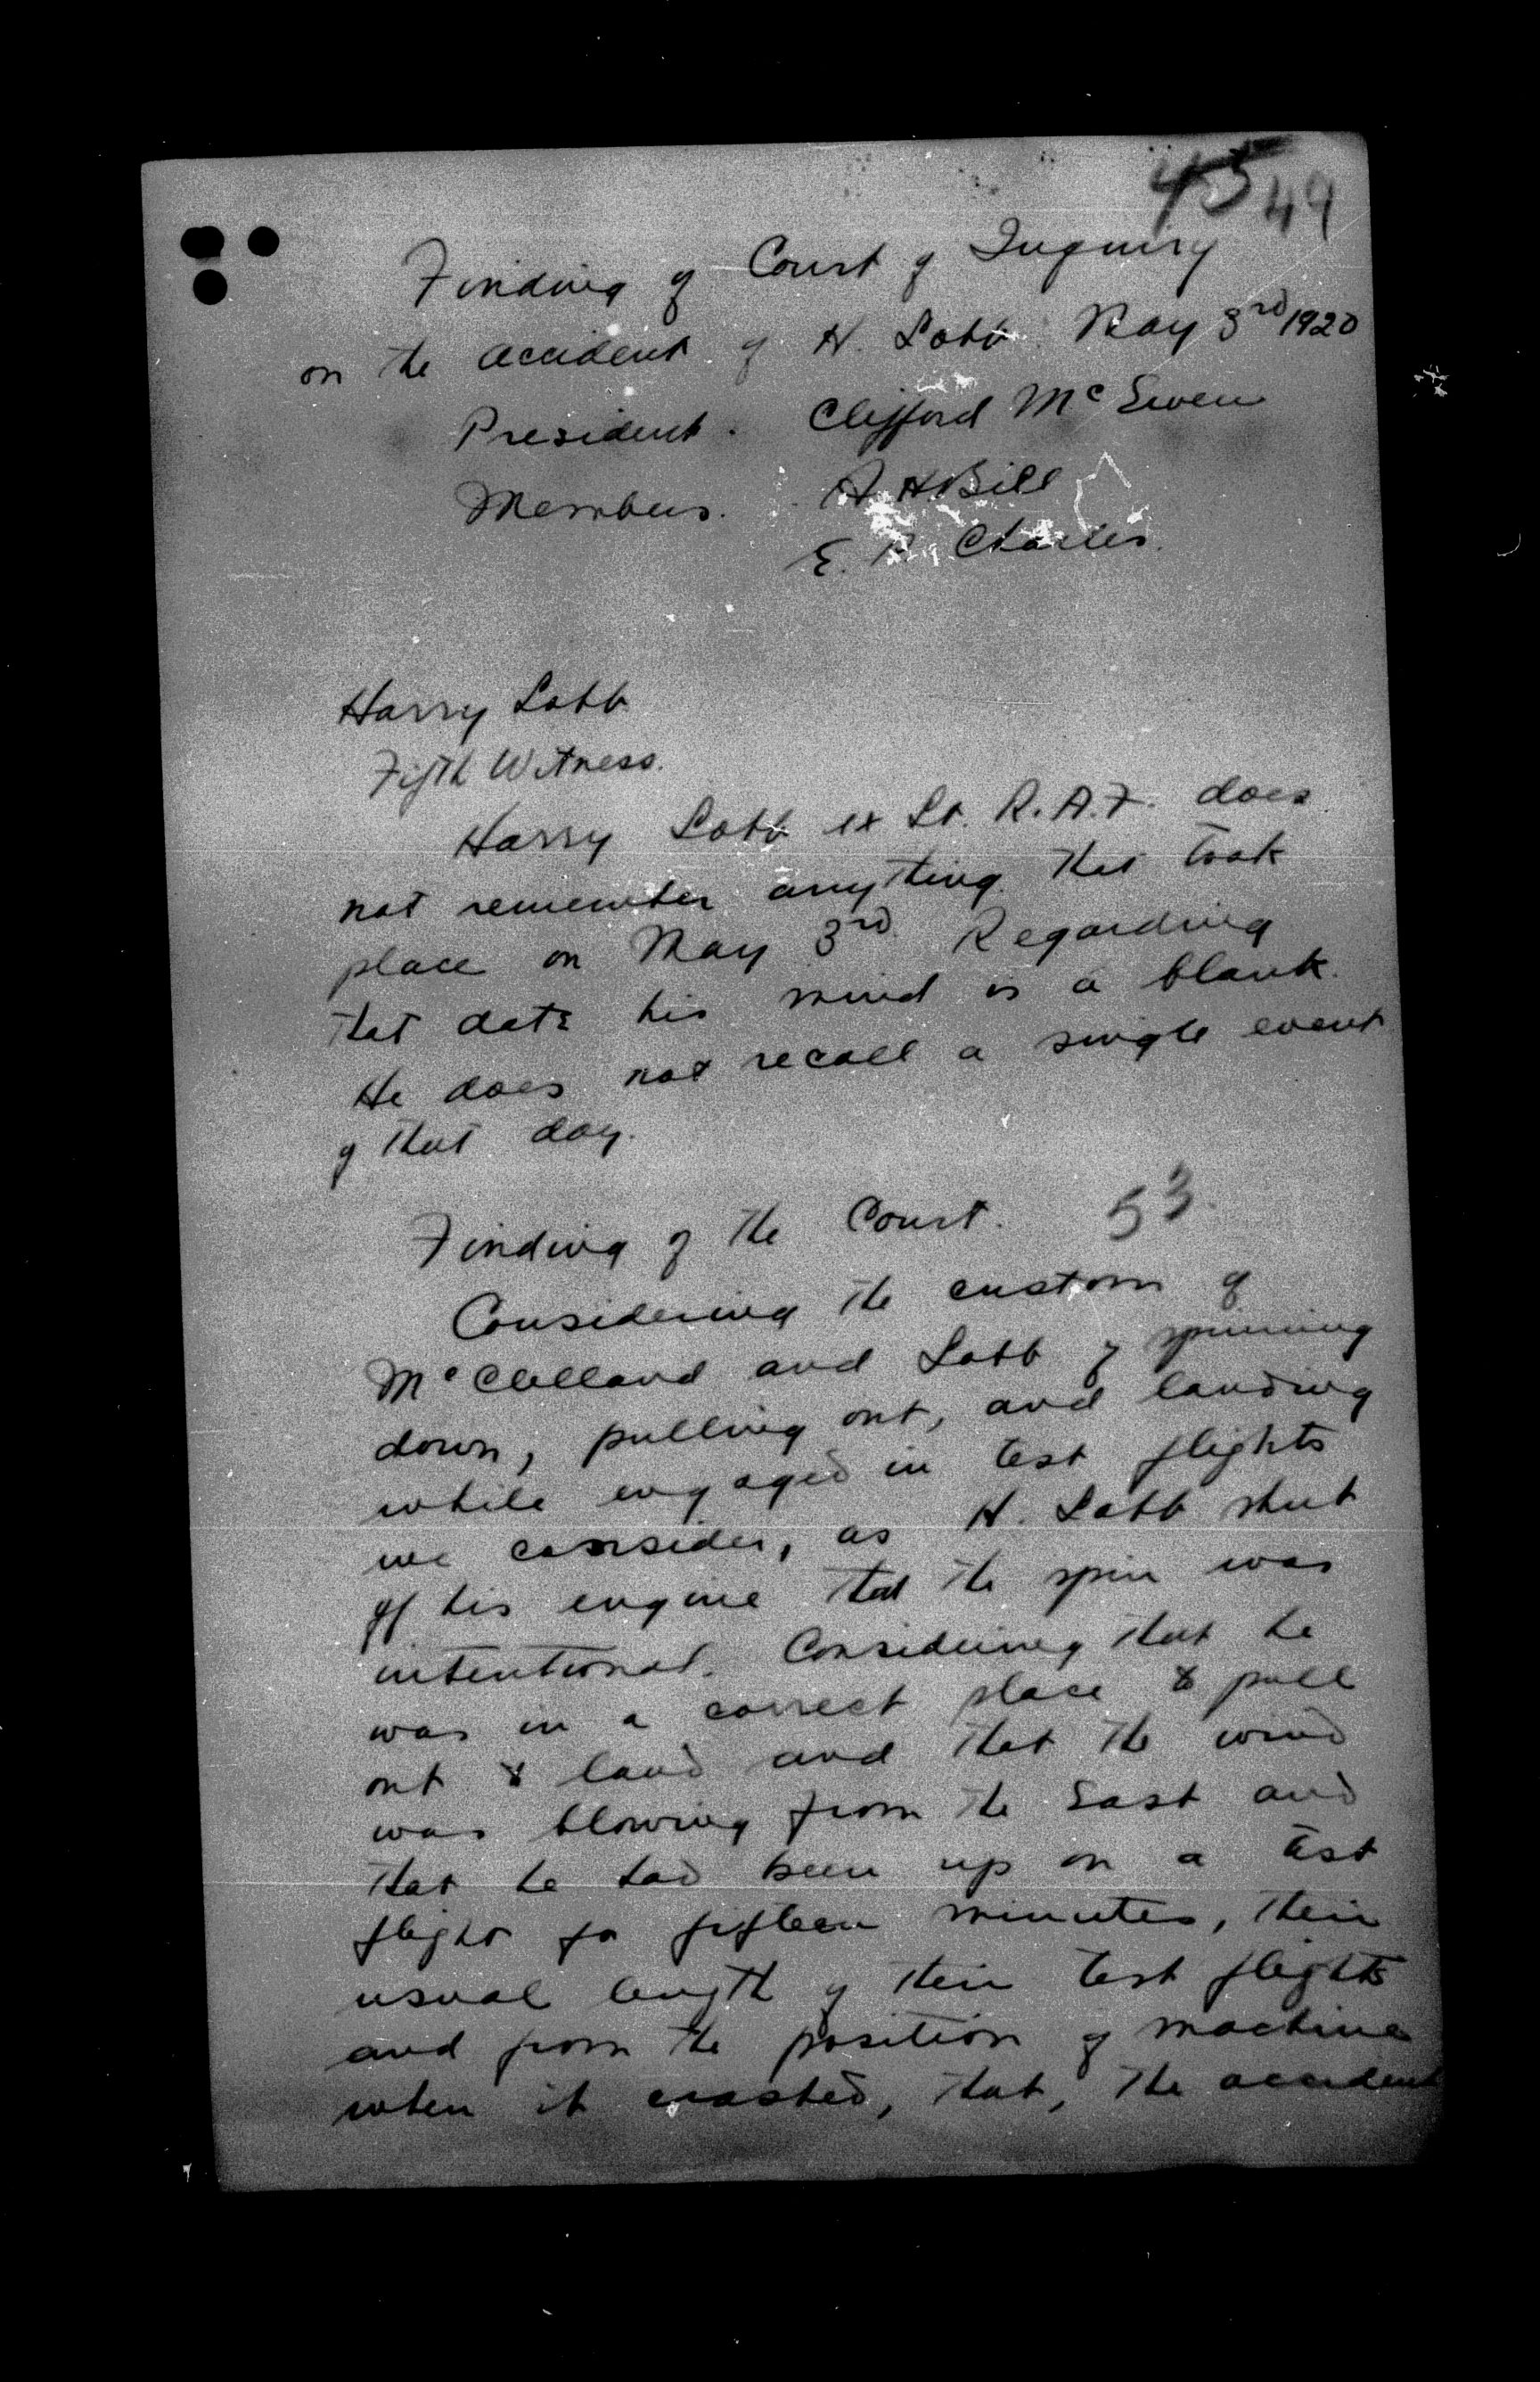 45 49
Finding of Court of Inquiry
on the accident of H. Lobb. May 3rd 1920
President. Clifford McEwen
Members. A. H. Bill
E. Charles.
Harry Lobb
Fifth Witness.
Harry Lobb ex Lt. R.A.F. does
not remember anything that took
place on May 3rd. Regarding
that date his mind is a blank.
He does not recall a single event
of that day.
Finding of the Court. 53.
Considering the custom of
McClelland and Lobb of spinning
down, pulling out, and landing
while engaged in test flights
we consider, as H. Lobb shut
off his engine that the spin was
intentional. Considering that he
was in a correct place to pull
out & land and that the wind
was blowing from the East and
that he had been up on a test
flight for fifteen minutes, their
usual length of their test flights
and from the position of machine
when it crashed, that, the accident